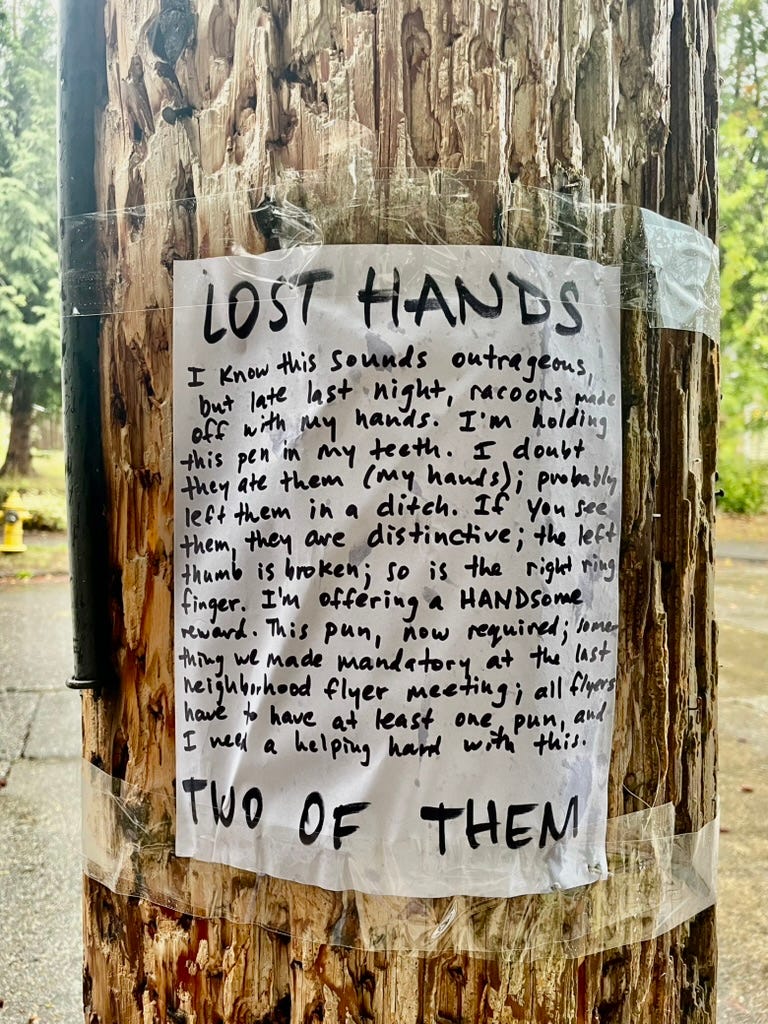 LOST HANDS
I know this sounds outrageous,
but late last night, racoons made
off with my hands. I'm holding
this pen in my teeth. I doubt
they ate them (my hands); probably
left them in a ditch. If you see
them, they are distinctive; the left
thumb is broken; so is the right ring
finger. I'm offering a HANDsome
reward. This pun, now required; some-
thing we made mandatory at the last
neighborhood flyer meeting; all flyers
have to have at least one pun, and
I need a helping hand with this.
TWO OF THEM